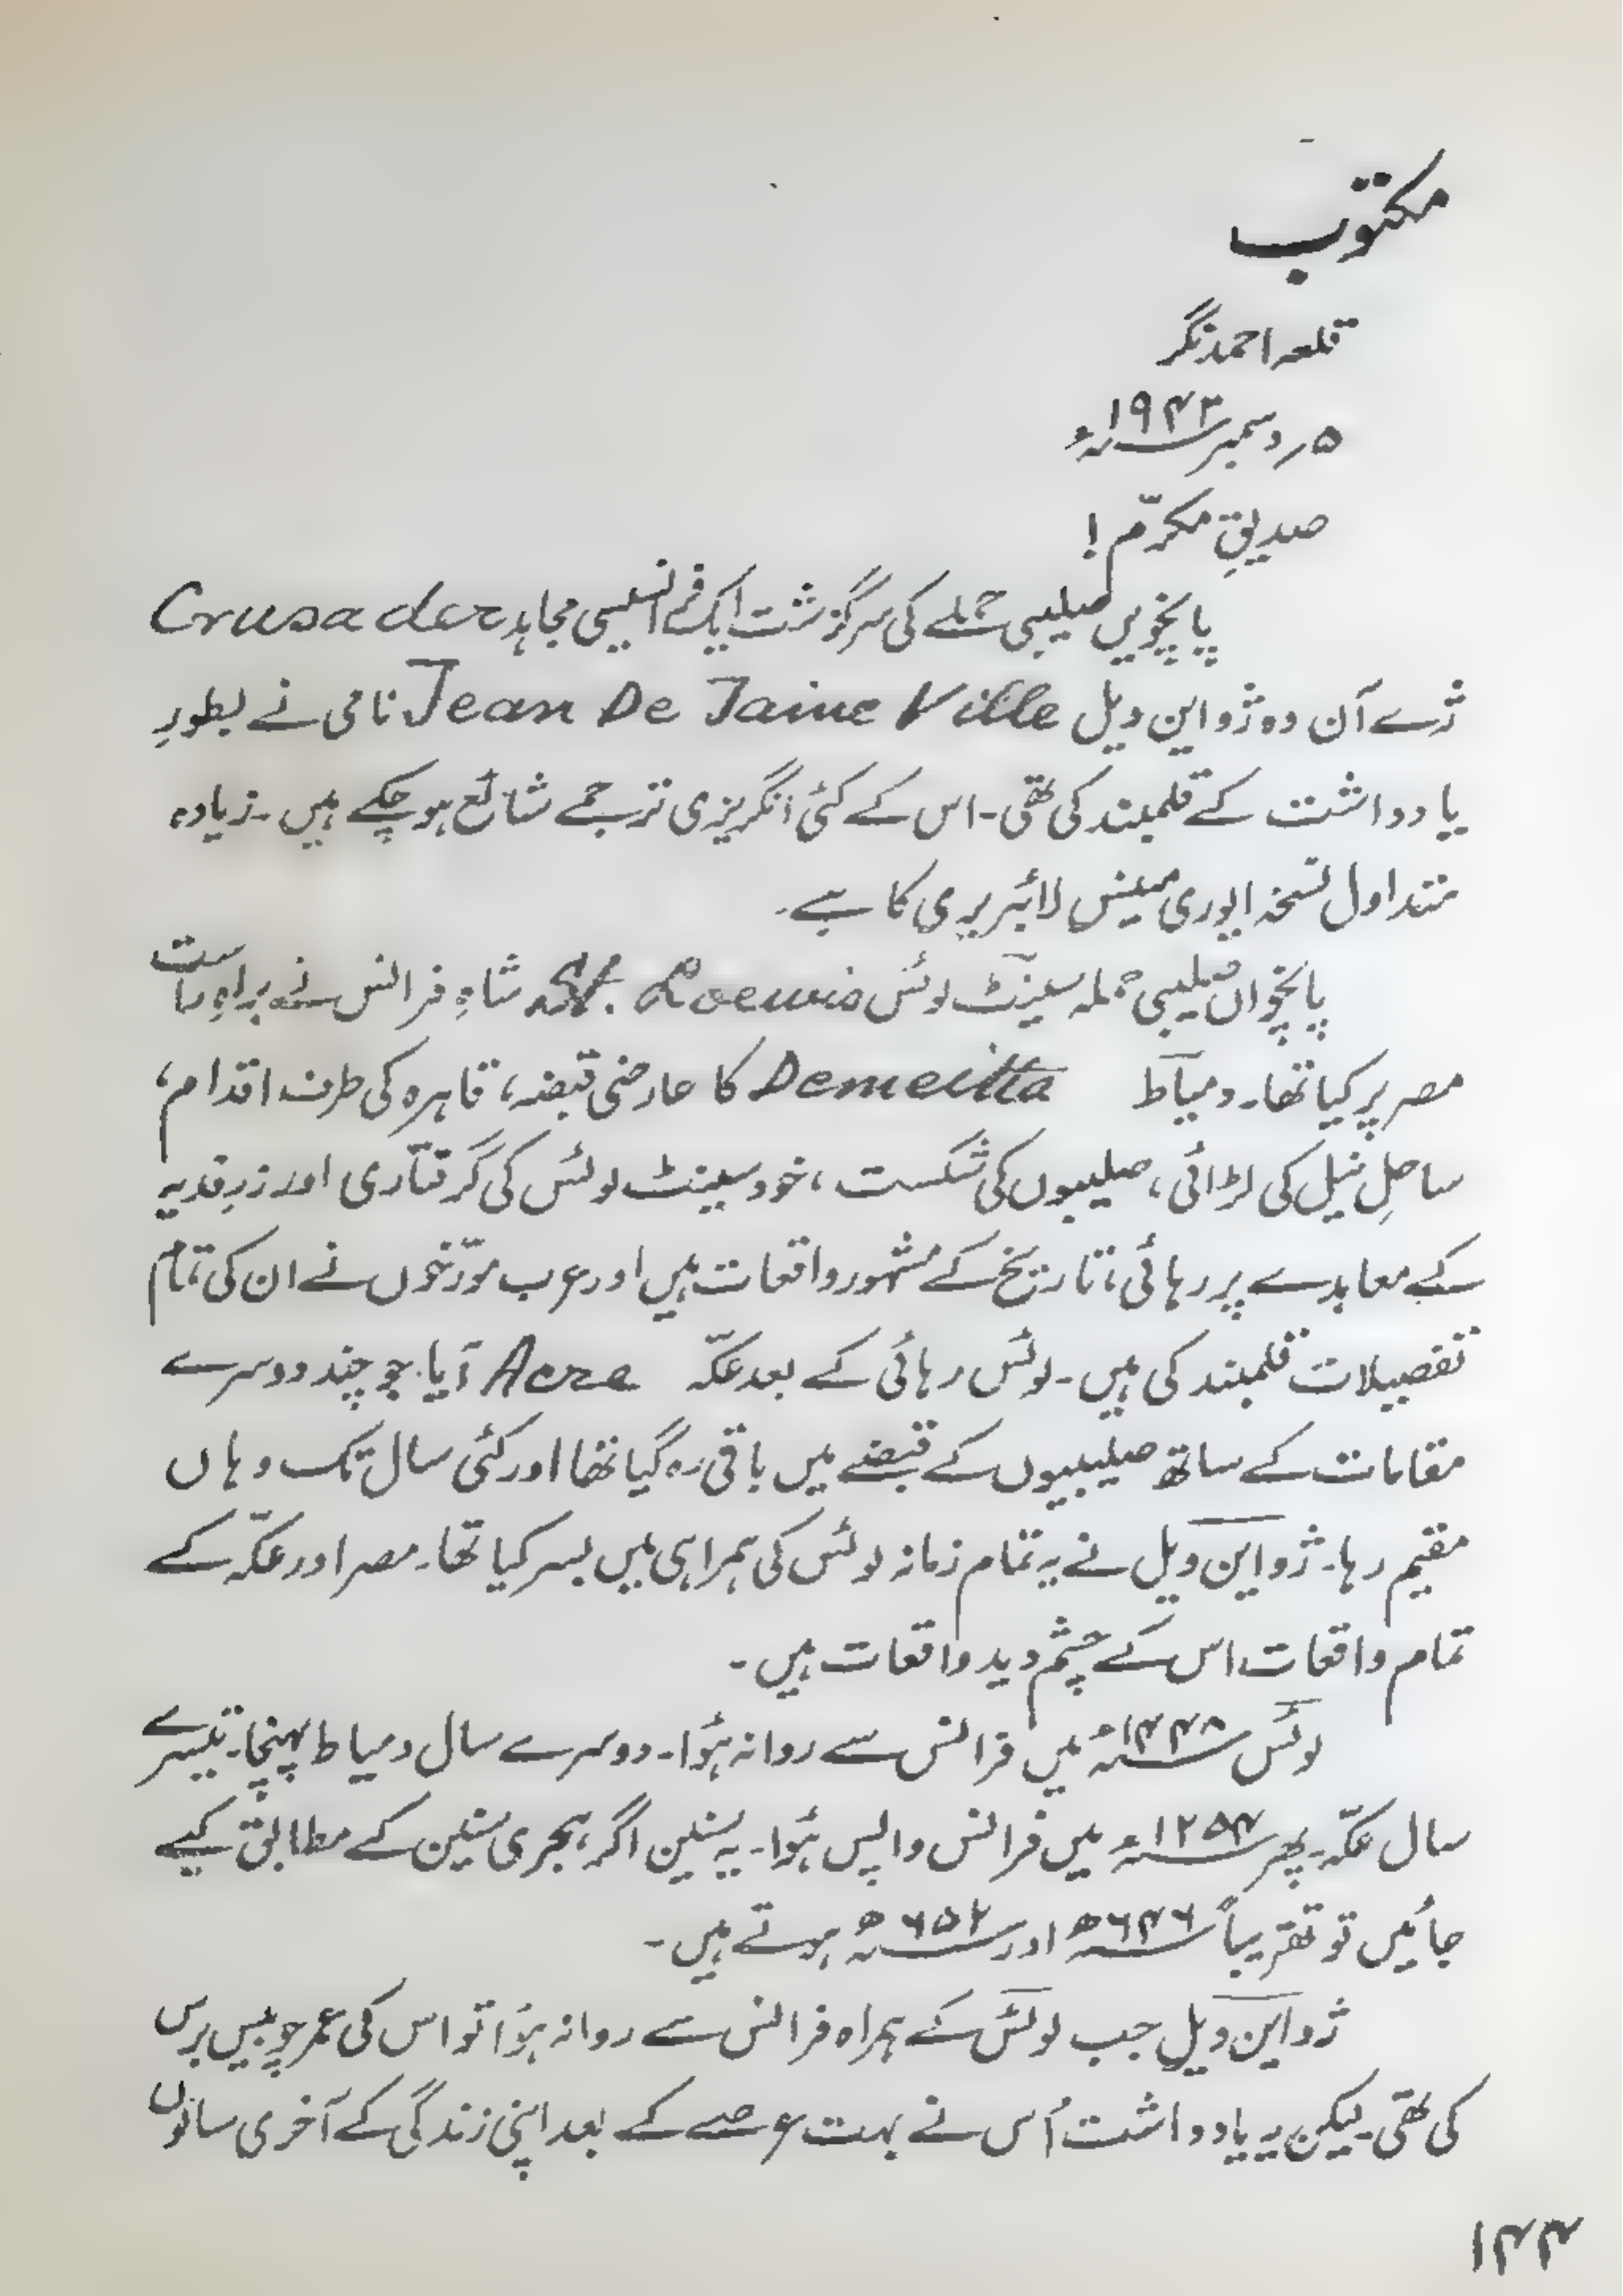 مکتوب
قلعہ احمد نگر
۵؍ دسمبر ۱۹۴۳ء
صدیقِ مکرّم!
پانچویں صلیبی حملے کی سرگزشت ایک فرانسیسی مجاہد Crusader
ژے آن دہ ژو این ویل Jean De Jaine Ville نامی نے بطورِ
یادداشت کے قلمبند کی تھی۔ اس کے کئی انگریزی ترجمے شائع ہو چکے ہیں۔ زیادہ
متداول نسخہ ایوری مینس لائبریری کا ہے۔
پانچواں صلیبی حملہ سینٹ لوئس St. Loewis شاہِ فرانس نے براہِ راست
مصر پر کیا تھا۔ دمیاط Demeitta کا عارضی قبضہ، قاہرہ کی طرف اقدام،
ساحلِ نیل کی لڑائی، صلیبیوں کی شکست، خود سینٹ لوئس کی گرفتاری اور زرِ فدیہ
کے معاہدے پر رہائی، تاریخ کے مشہور واقعات ہیں اور عرب مورّخوں نے ان کی تمام
تفصیلات قلمبند کی ہیں۔ لوئس رہائی کے بعد عکّہ Acre آیا۔ جو چند دوسرے
مقامات کے ساتھ صلیبیوں کے قبضے میں باقی رہ گیا تھا اور کئی سال تک وہاں
مقیم رہا۔ ژو این ویل نے یہ تمام زمانہ لوئس کی ہمراہی میں بسر کیا تھا۔ مصر اور عکّہ کے
تمام واقعات اس کے چشم دید واقعات ہیں۔
لوئس ۱۲۴۸ء میں فرانس سے روانہ ہؤا۔ دوسرے سال دمیاط پہنچا۔ تیسرے
سال عکّہ۔ پھر ۱۲۵۴ء میں فرانس واپس ہؤا۔ یہ سنین اگر ہجری سنین کے مطابق کیے
جائیں تو تقریباً ۶۴۶ھ اور ۶۵۲ھ ہوتے ہیں۔
ژو این ویل جب لوئس کے ہمراہ فرانس سے روانہ ہؤا تو اس کی عمر چوبیس برس
کی تھی۔ لیکن یہ یادداشت اُس نے بہت عرصے کے بعد اپنی زندگی کے آخری سالوں
۱۴۴